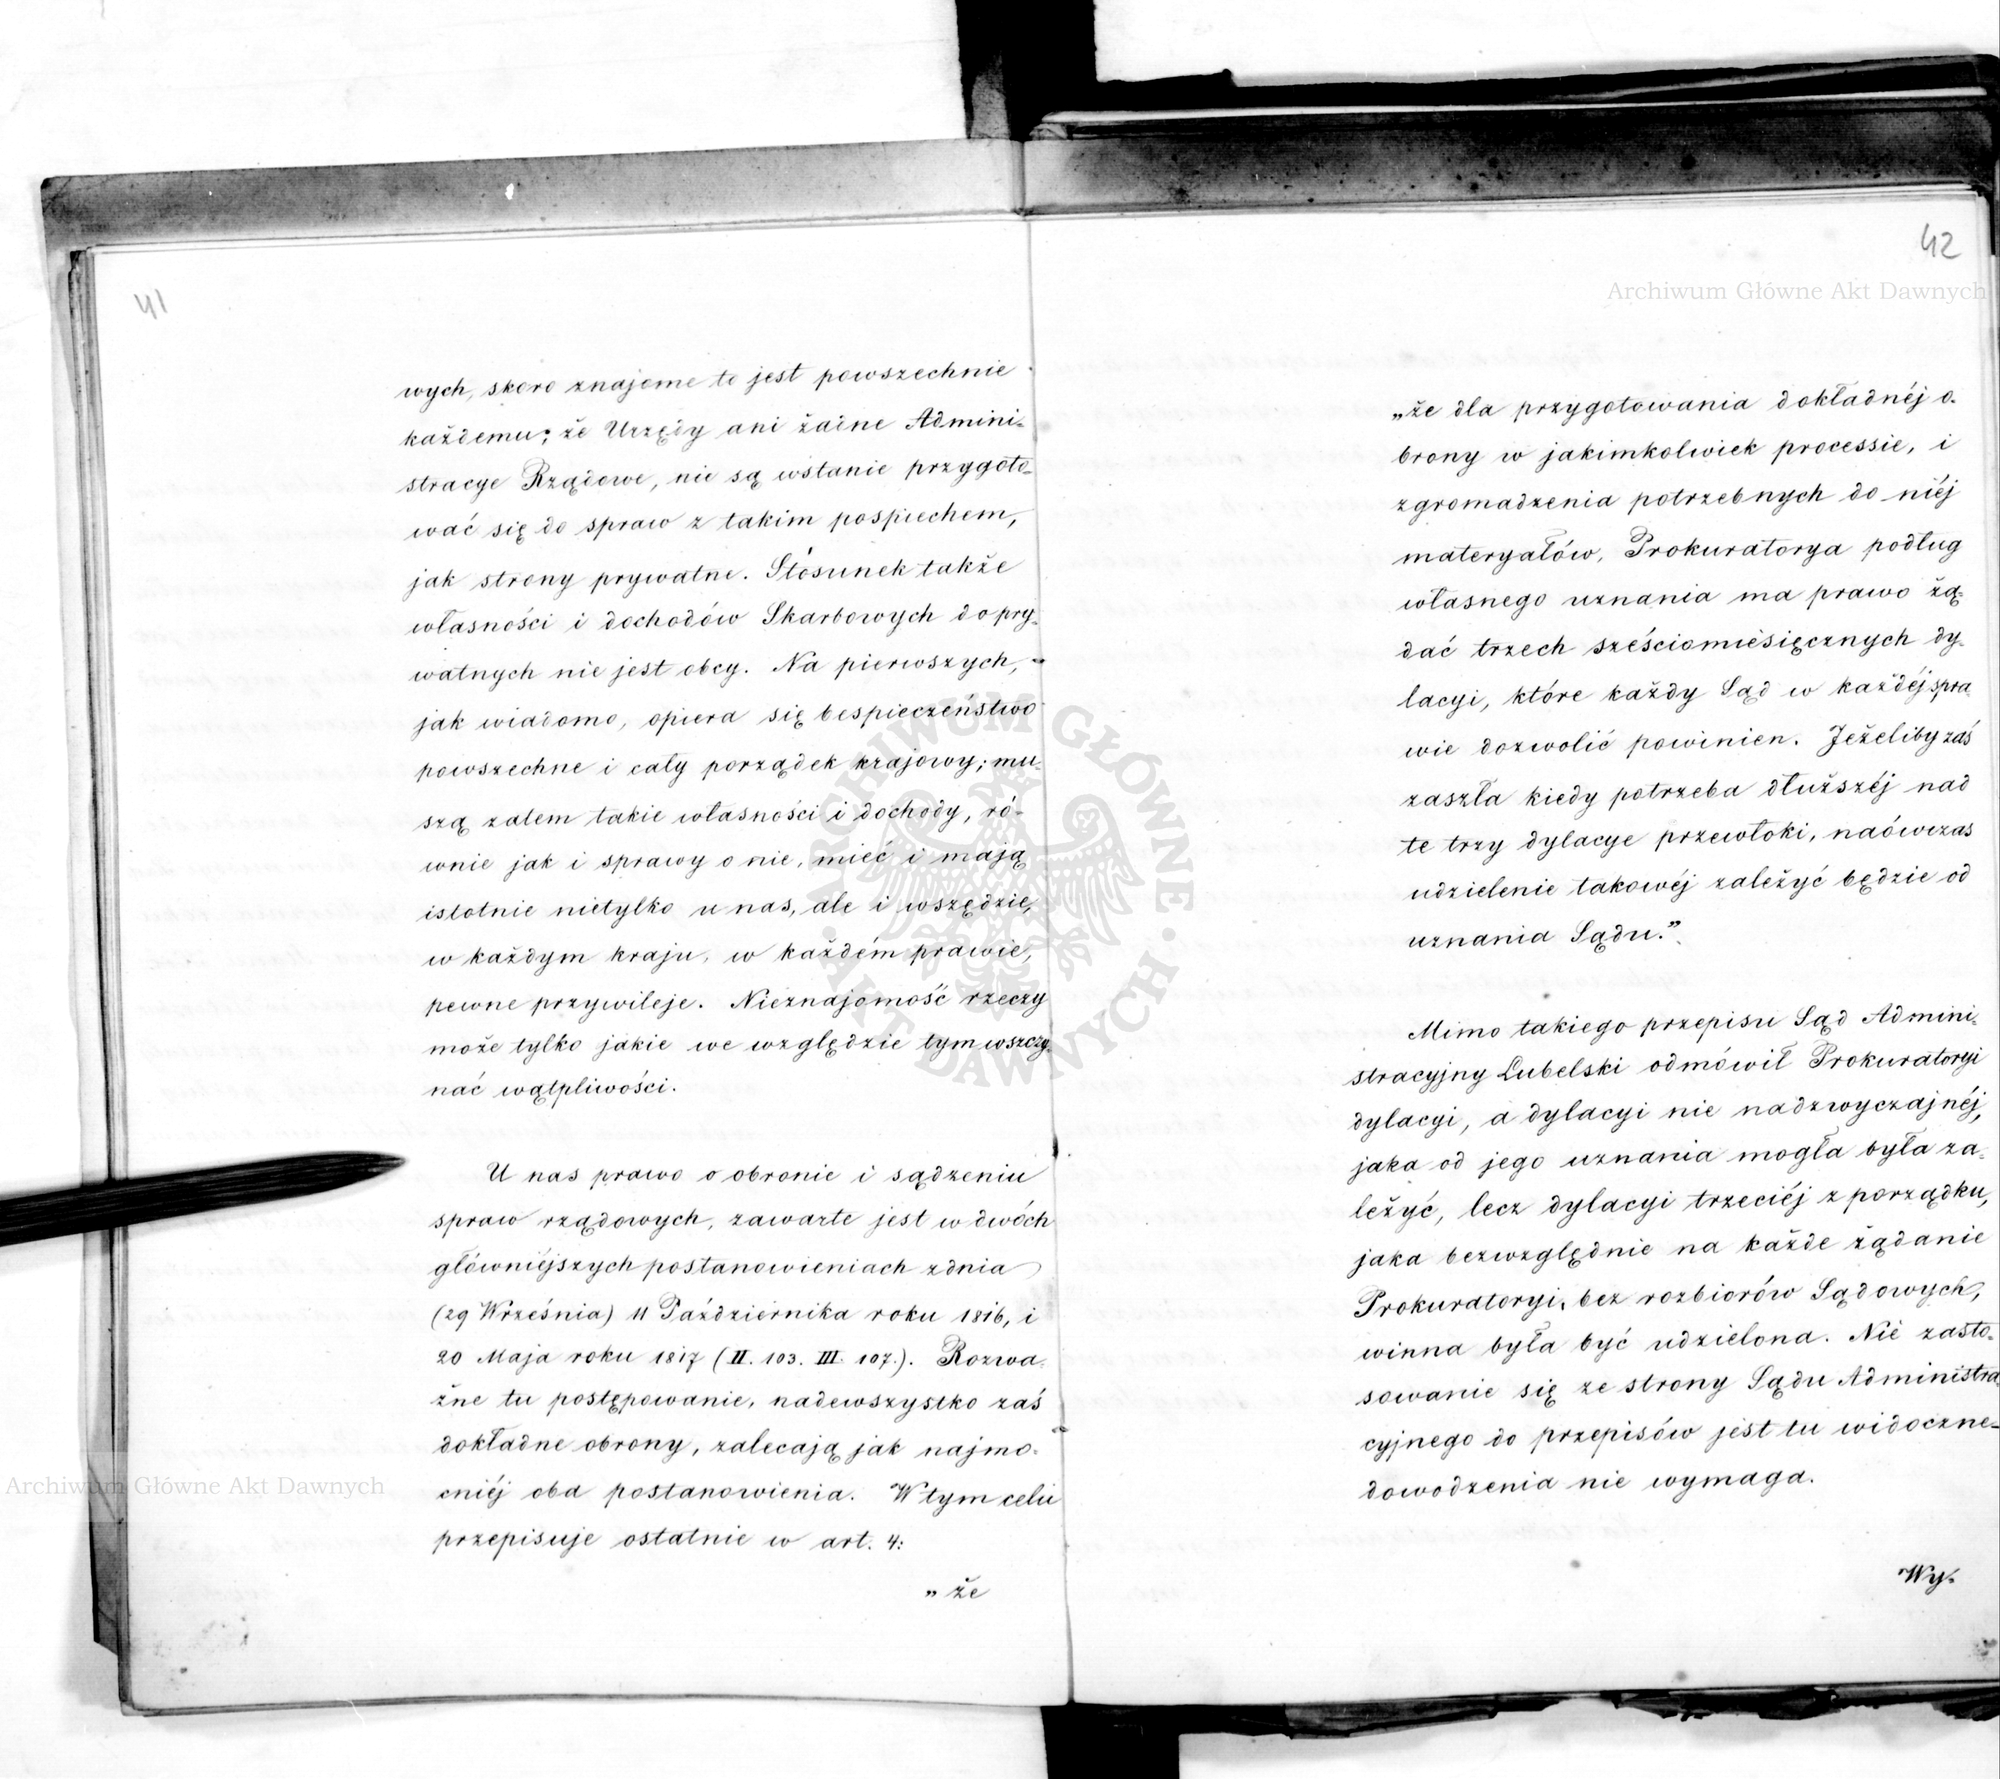 41
wych, skoro znajome to jest powszechnie
każdemu; że Urzędy ani żadne Admini-
stracye Rządowe, nie są wstanie przygoto-
wać się do spraw z takim pospiechem,
jak strony prywatne. Stósunek także
własności i dochodów Skarbowych do pry-
watnych nie jest obcy. Na pierwszych,
jak wiadomo, opiera się bespieczeństwo
powszechne i cały porządek krajowy; mu-
szą zatem takie własności i dochody, ró-
wnie jak i sprawy o nie, mieć i mają
istotnie nietylko u nas, ale i wszędzie,
w każdym kraju, w każdém prawie,
pewne przywileje. Nieznajomość rzeczy
może tylko jakie we względzie tym wszczy-
nać wątpliwości.
U nas prawo o obronie i sądzeniu
spraw rządowych, zawarte jest w dwóch
główniejszych postanowieniach z dnia
(29 Września) 11 Października roku 1816, i
20 Maja roku 1817 (II. 103. III. 107.). Rozwa-
żne tu postępowanie, nadewszystko zaś
dokładne obrony, zalecają jak najmo-
cniéj oba postanowienia. W tym celu
przepisuje ostatnie w art. 4:
„że
42
„że dla przygotowania dokładnéj o-
brony w jakimkolwiek processie, i
zgromadzenia potrzebnych do niéj
materyałów, Prokuratorya podług
własnego uznania ma prawo żą-
dać trzech sześciomiesięcznych dy-
lacyi, które każdy Sąd w każdéj spra
wie dozwolić powinien. Jeżeliby zaś
zaszła kiedy potrzeba dłuższéj nad
te trzy dylacye przewłoki, naówczas
udzielenie takowéj zależyć będzie od
uznania Sądu.”
Mimo takiego przepisu Sąd Admini-
stracyjny Lubelski odmówił Prokuratoryi
dylacyi, a dylacyi nie nadzwyczajnéj,
jaka od jego uznania mogła była za-
leżyć, lecz dylacyi trzeciéj z porządku,
jaka bezwzględnie na każde żądanie
Prokuratoryi, bez rozbiorów Sądowych,
winna była być udzielona. Nie zasto-
sowanie się ze strony Sądu Administra
cyjnego do przepisów jest tu widoczne-
dowodzenia nie wymaga.
Wy-
Archiwum Główne Akt Dawnych
Archiwum Główne Akt Dawnych
· ARCHIWUM GŁÓWNE · AKT DAWNYCH